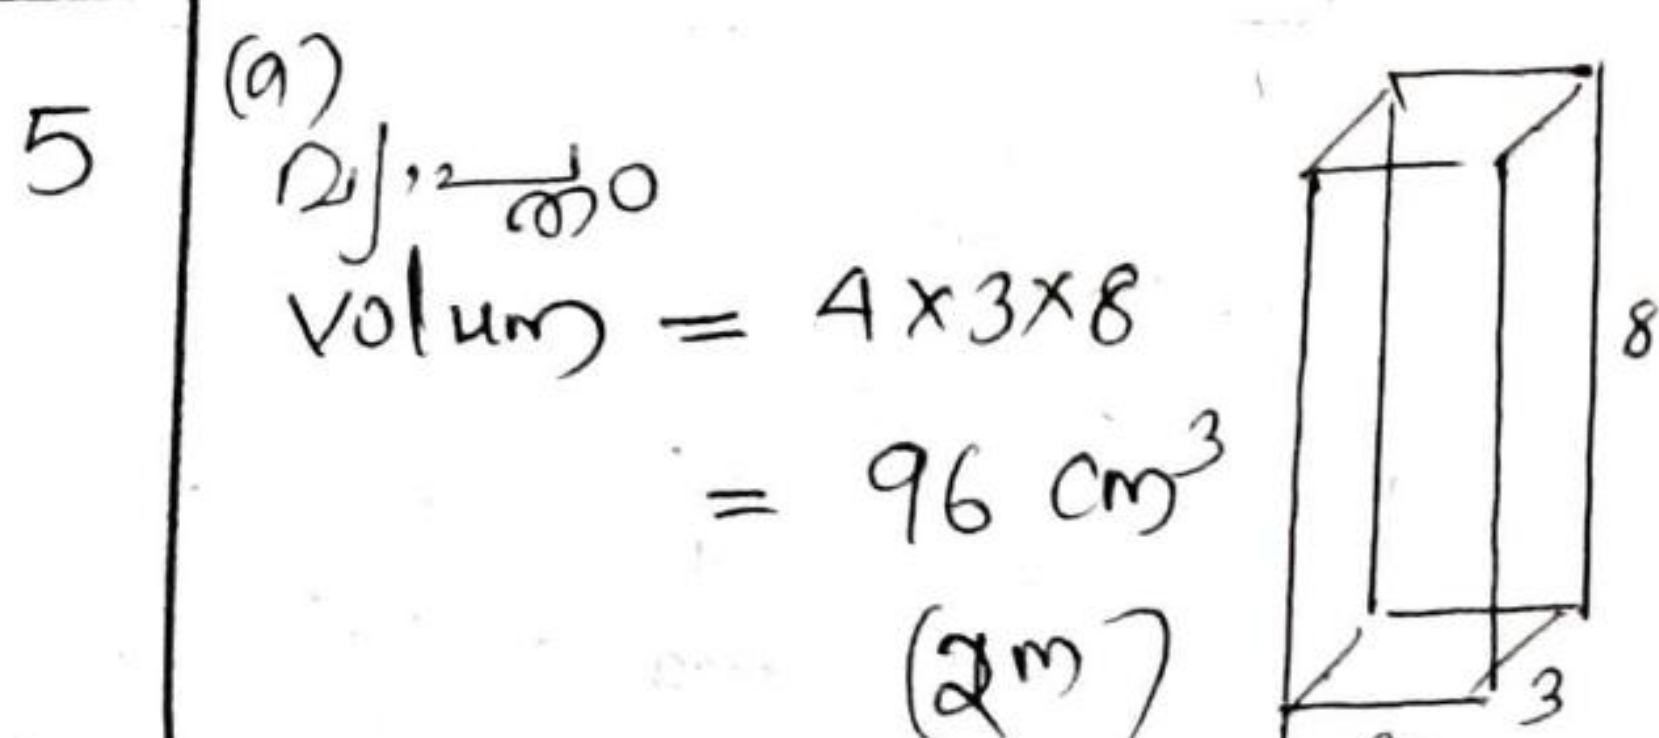 5
(a)
വ്യാപ്തം
volum = 4×3×8
= 96 cm³
(2m)
8
3